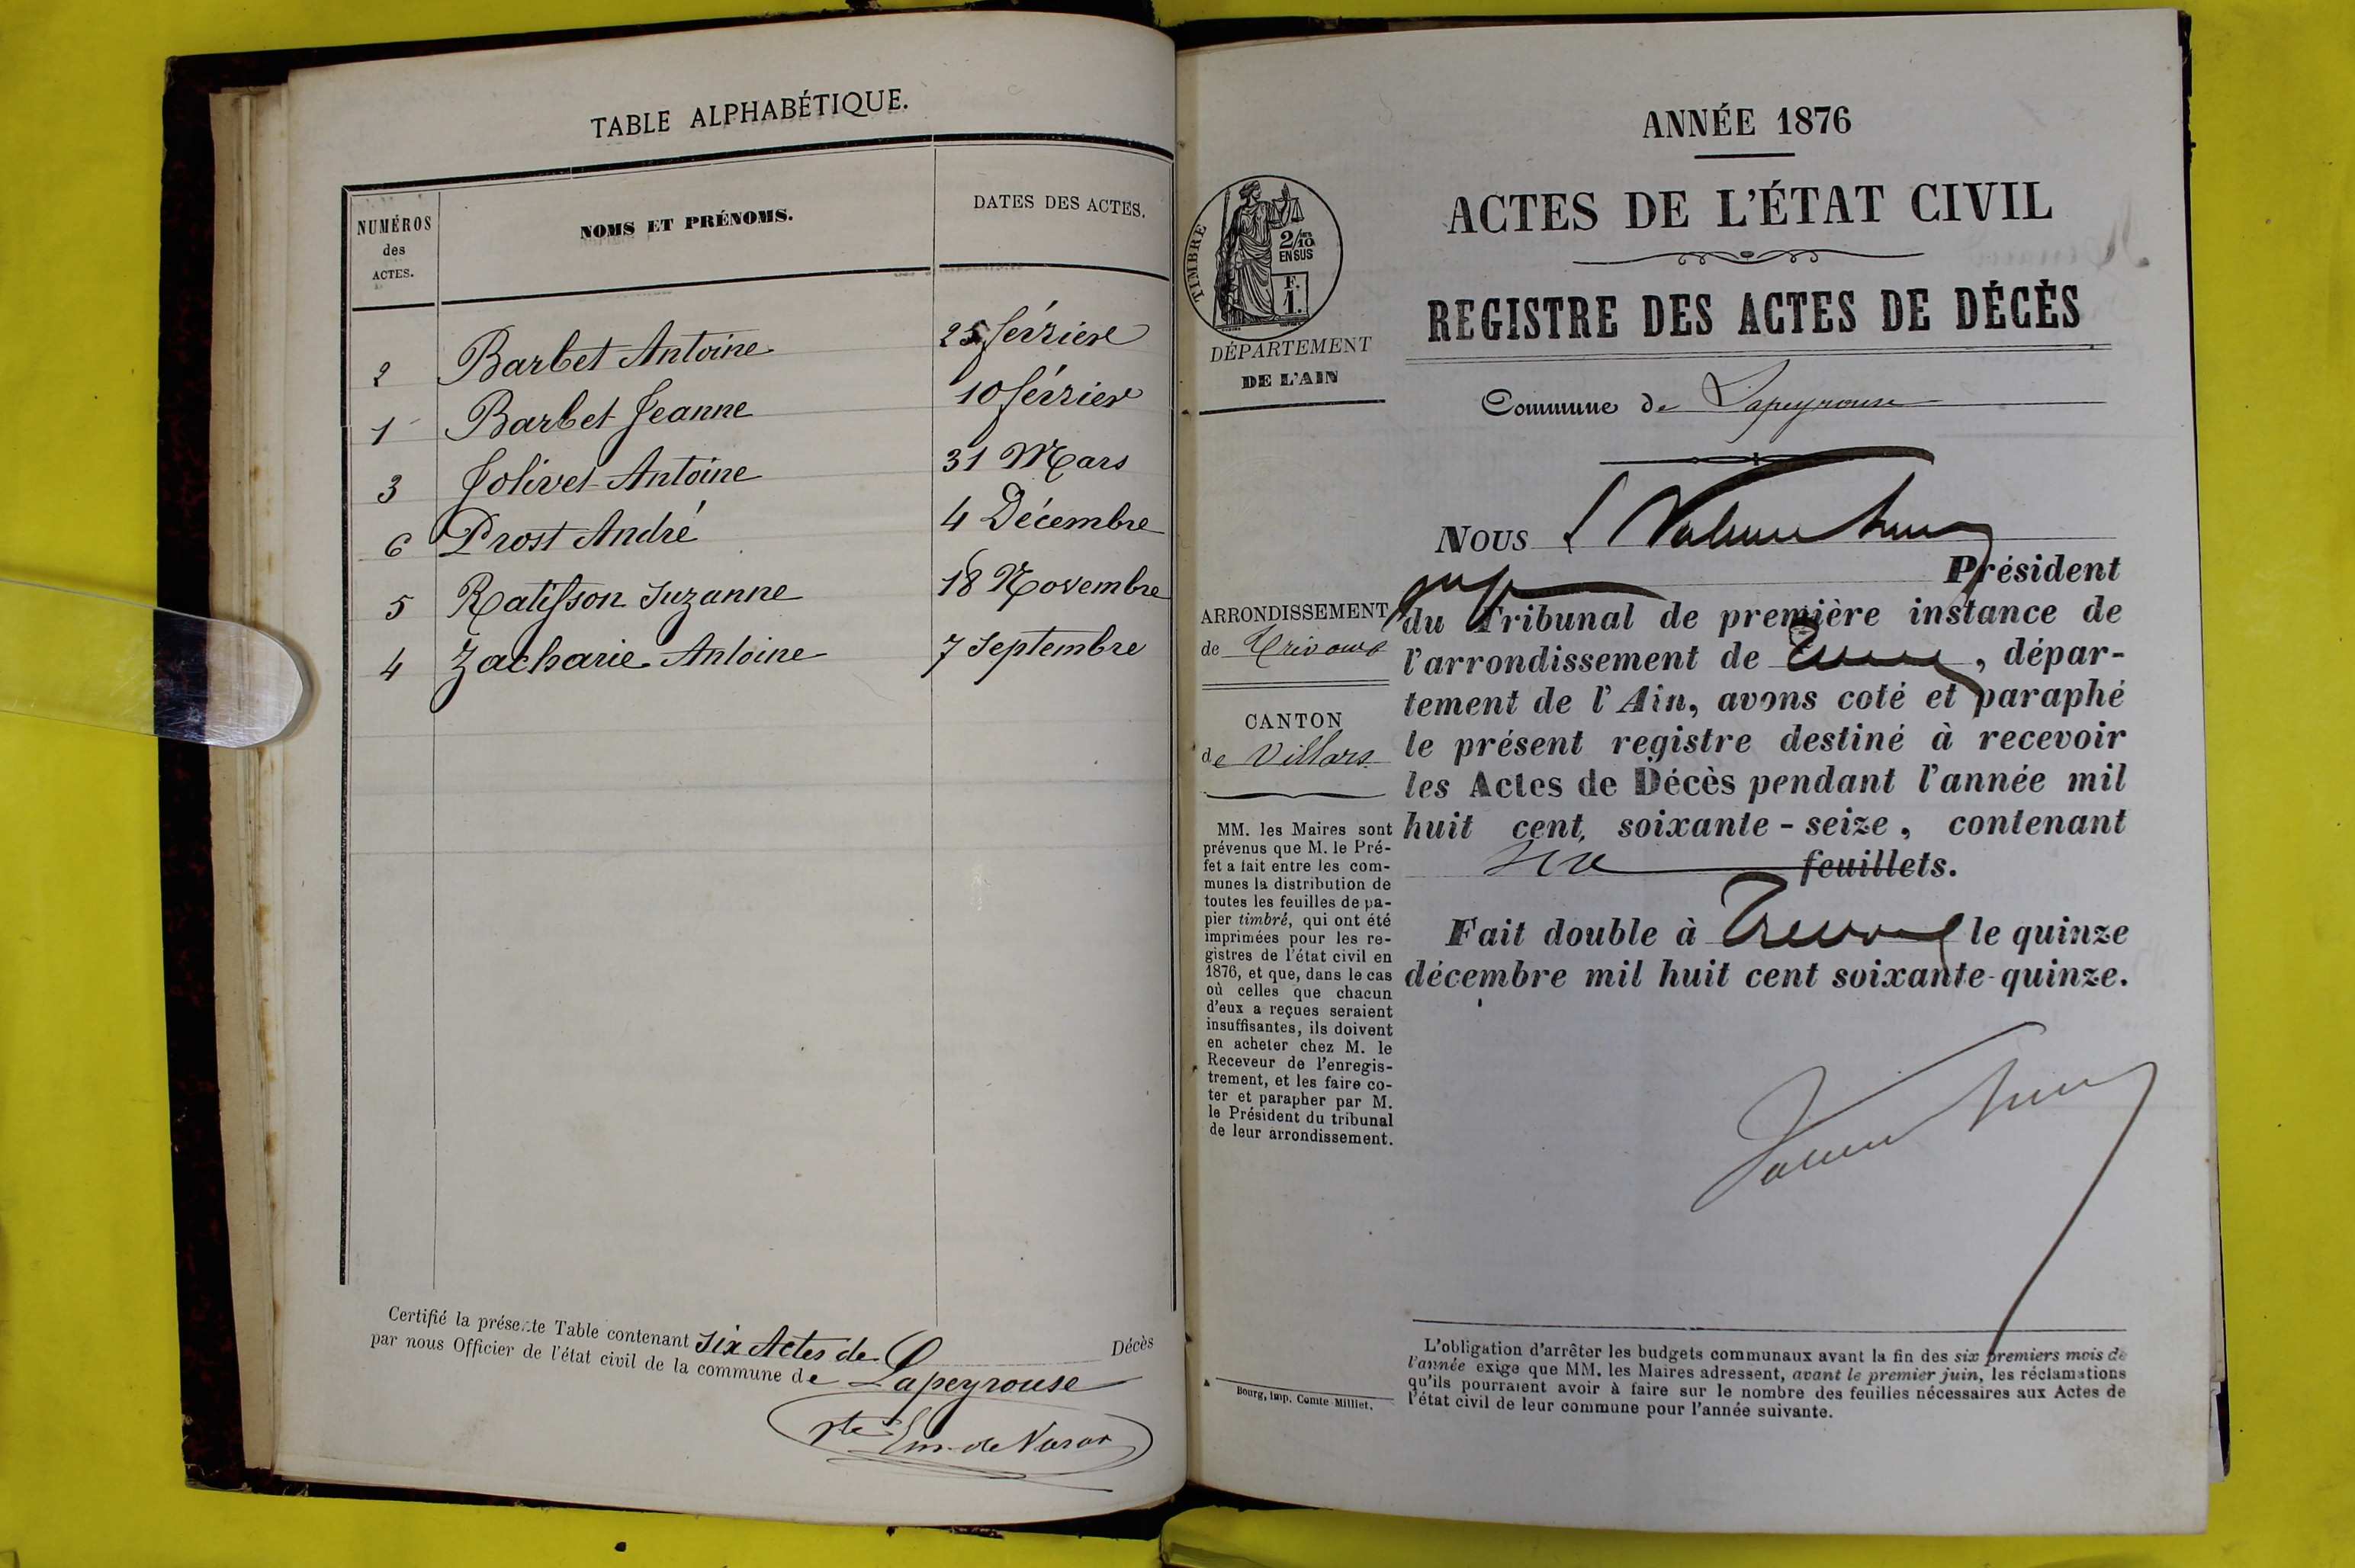 TABLE ALPHABÉTIQUE.
NUMÉROS
des
ACTES.
NOMS ET PRÉNOMS.
DATES DES ACTES.
2 Barbet Antoine 25 février
1 Barbet Jeanne 10 février
3 Jolivet Antoine 31 Mars
6 Prost André 4 Décembre
5 Ratisson Suzanne 18 Novembre
4 Zacharie Antoine 7 Septembre
Certifié la présente Table contenant Six Actes de Décès
par nous Officier de l'état civil de la commune de Lapeyrouse
ANNÉE 1876
ACTES DE L'ÉTAT CIVIL
REGISTRE DES ACTES DE DÉCÈS
TIMBRE
2/10
EN SUS
F.
1.
DÉPARTEMENT
DE L'AIN
Commune de Lapeyrouse
ARRONDISSEMENT
de Trévoux
CANTON
de Villars
MM. les Maires sont
prévenus que M. le Pré-
fet a fait entre les com-
munes la distribution de
toutes les feuilles de pa-
pier timbré, qui ont été
imprimées pour les re-
gistres de l'état civil en
1876, et que, dans le cas
où celles que chacun
d'eux a reçues seraient
insuffisantes, ils doivent
en acheter chez M. le
Receveur de l'enregis-
trement, et les faire co-
ter et parapher par M.
le Président du tribunal
de leur arrondissement.
Bourg, imp. Comte-Milliet.
NOUS
Président
du Tribunal de première instance de
l'arrondissement de , dépar-
tement de l'Ain, avons coté et paraphé
le présent registre destiné à recevoir
les Actes de Décès pendant l'année mil
huit cent soixante-seize, contenant
six feuillets.
Fait double à Trévoux le quinze
décembre mil huit cent soixante-quinze.
L'obligation d'arrêter les budgets communaux avant la fin des six premiers mois de
l'année exige que MM. les Maires adressent, avant le premier juin, les réclamations
qu'ils pourraient avoir à faire sur le nombre des feuilles nécessaires aux Actes de
l'état civil de leur commune pour l'année suivante.